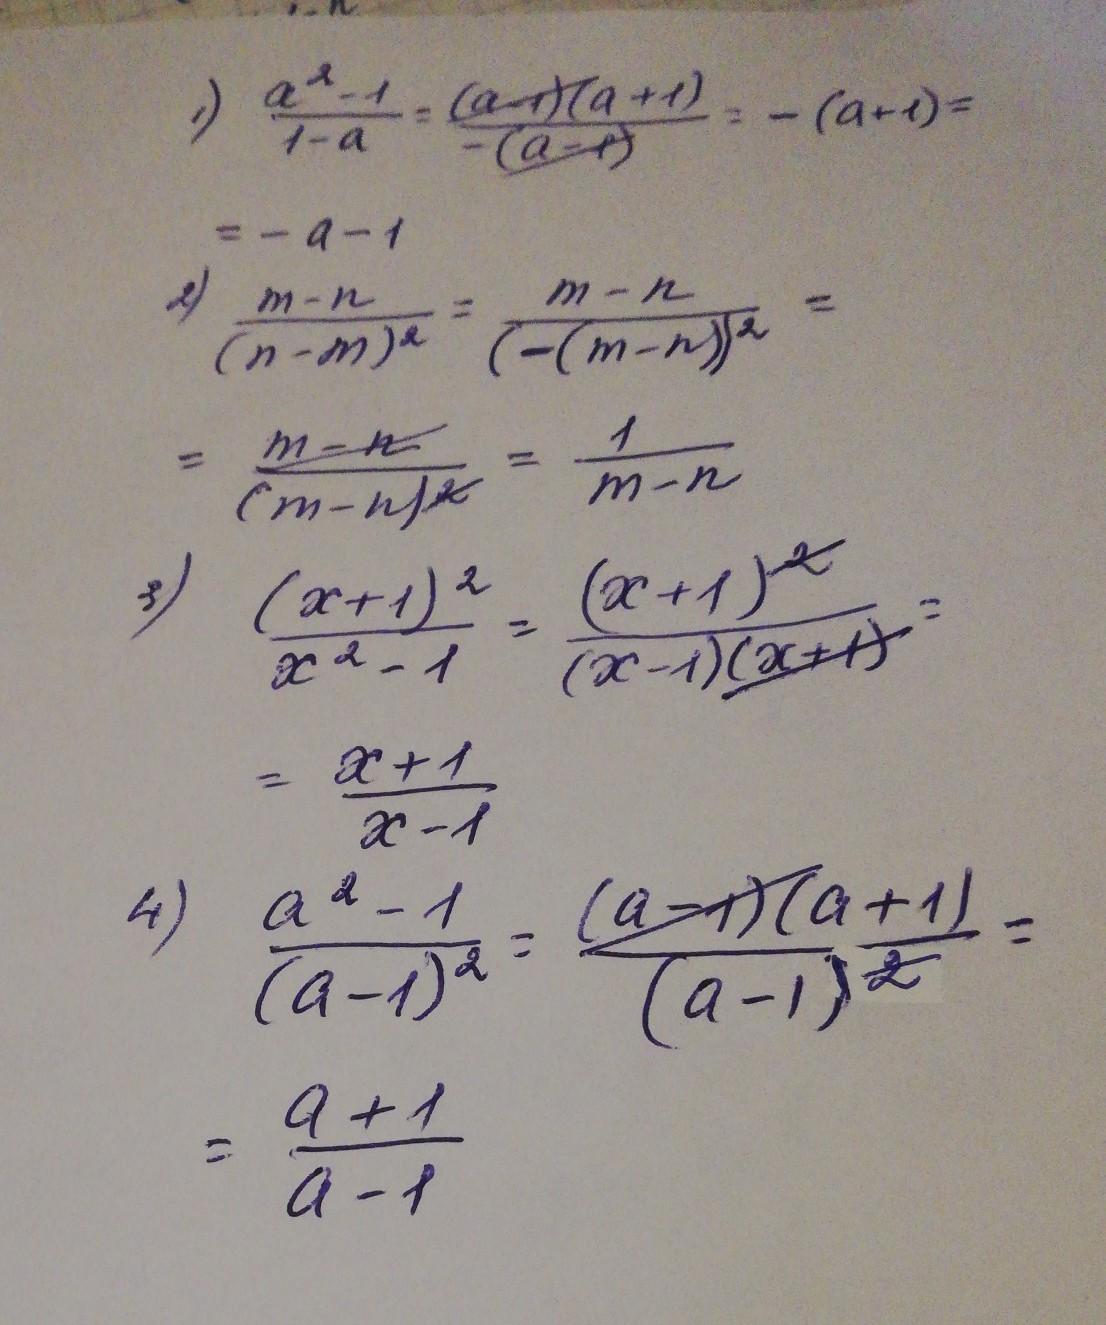 1) (a² - 1)/(1 - a) = ((a-1)(a+1))/(-(a-1)) = -(a+1) =
= -a-1
2) (m-n)/((n-m)²) = (m-n)/((-(m-n))²) =
= (m-n)/((m-n)²) = 1/(m-n)
3) ((x+1)²)/(x² - 1) = ((x+1)²)/((x-1)(x+1)) =
= (x+1)/(x-1)
4) (a² - 1)/((a-1)²) = ((a-1)(a+1))/((a-1)²) =
= (a+1)/(a-1)